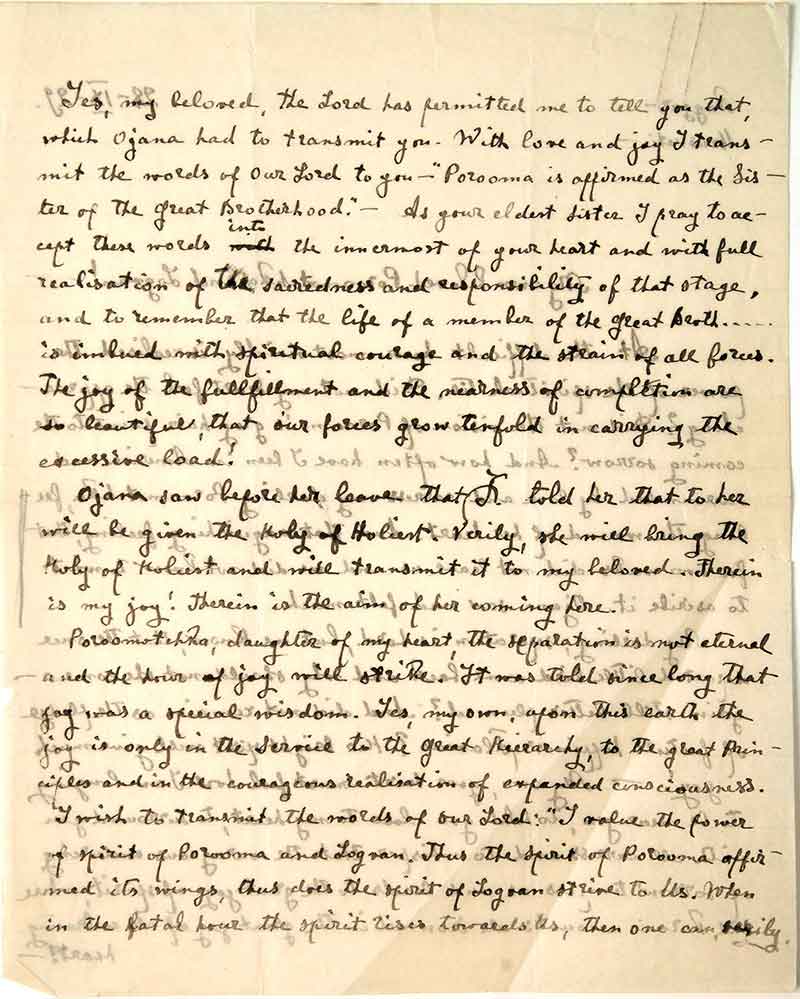 Yes, my beloved, the Lord has permitted me to tell you that,
which Ojana had to transmit you. With love and joy I trans-
mit the words of Our Lord to you – "Porooma is affirmed as the Sis-
ter of the Great Brotherhood." – As your eldest sister I pray to ac-
cept these words with into the innermost of your heart and with full
realisation of the sacredness and responsibility of that stage,
and to remember that the life of a member of the Great Broth.....
is imbued with spiritual courage and the strain of all forces.
The joy of the fullfillment and the nearness of completion are
so beautiful, that our forces grow tenfold in carrying the
excessive load!
Ojana saw before her leave that told her that to her
will be given the Holy of Holiest. Verily, she will bring the
Holy of Holiest and will transmit it to my beloved. Therein
is my joy! Therein is the aim of her coming here.
Poroomotchka, daughter of my heart, the separation is not eternal
and the hour of joy will strike. It was told since long that
joy was a special wisdom. Yes, my own, upon this earth the
joy is only in the Service to the Great Hierarchy, to the great Prin-
ciples and in the courageous realisation of expanded consciousness.
I wish to transmit the words of Our Lord: "I value the power
of spirit of Porooma and Logvan. Thus the spirit of Porooma affir-
med its wings, thus does the spirit of Logvan strive to Us. When
in the fatal hour the spirit rises towards Us, then one can, verily